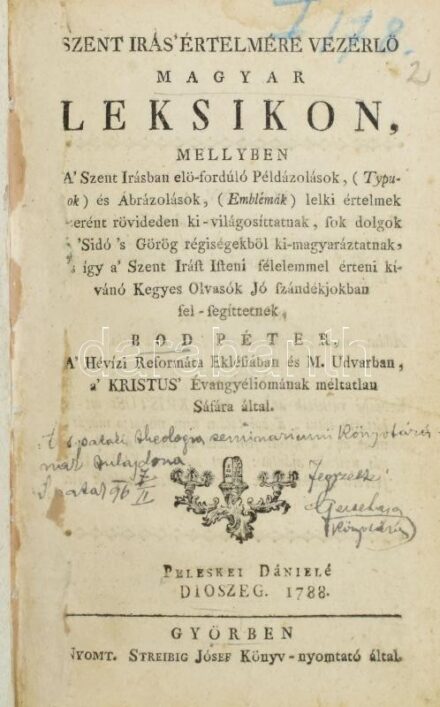 I 178.
2
SZENT IRÁS' ÉRTELMÉRE VEZÉRLŐ
MAGYAR
LEKSIKON,
MELLYBEN
A' Szent Irásban elö-fordúló Példázolások, (Typu-
ok) és Ábrázolások, (Emblémák) lelki értelmek
erént rövideden ki-világosíttatnak, sok dolgok
'Sidó 's Görög régiségekböl ki-magyaráztatnak,
így a' Szent Irást Isteni félelemmel érteni kí-
vánó Kegyes Olvasók Jó szándékjokban
fel-segíttetnek,
BOD PÉTER,
A' Hévízi Reformáta Eklésiában és M. Udvarban,
a' KRISTUS' Evangyéliomának méltatlan
Sáfára által.
A s. pataki theologia seminariumi Könyvtárá-
nak tulajdona
S patak
Jegyzette
Könyvtáros
PELESKEI DÁNIELÉ
DIOSZEG. 1788.
GYÖRBEN
NYOMT. STREIBIG JÓSEF Könyv-nyomtató által.
darabanth